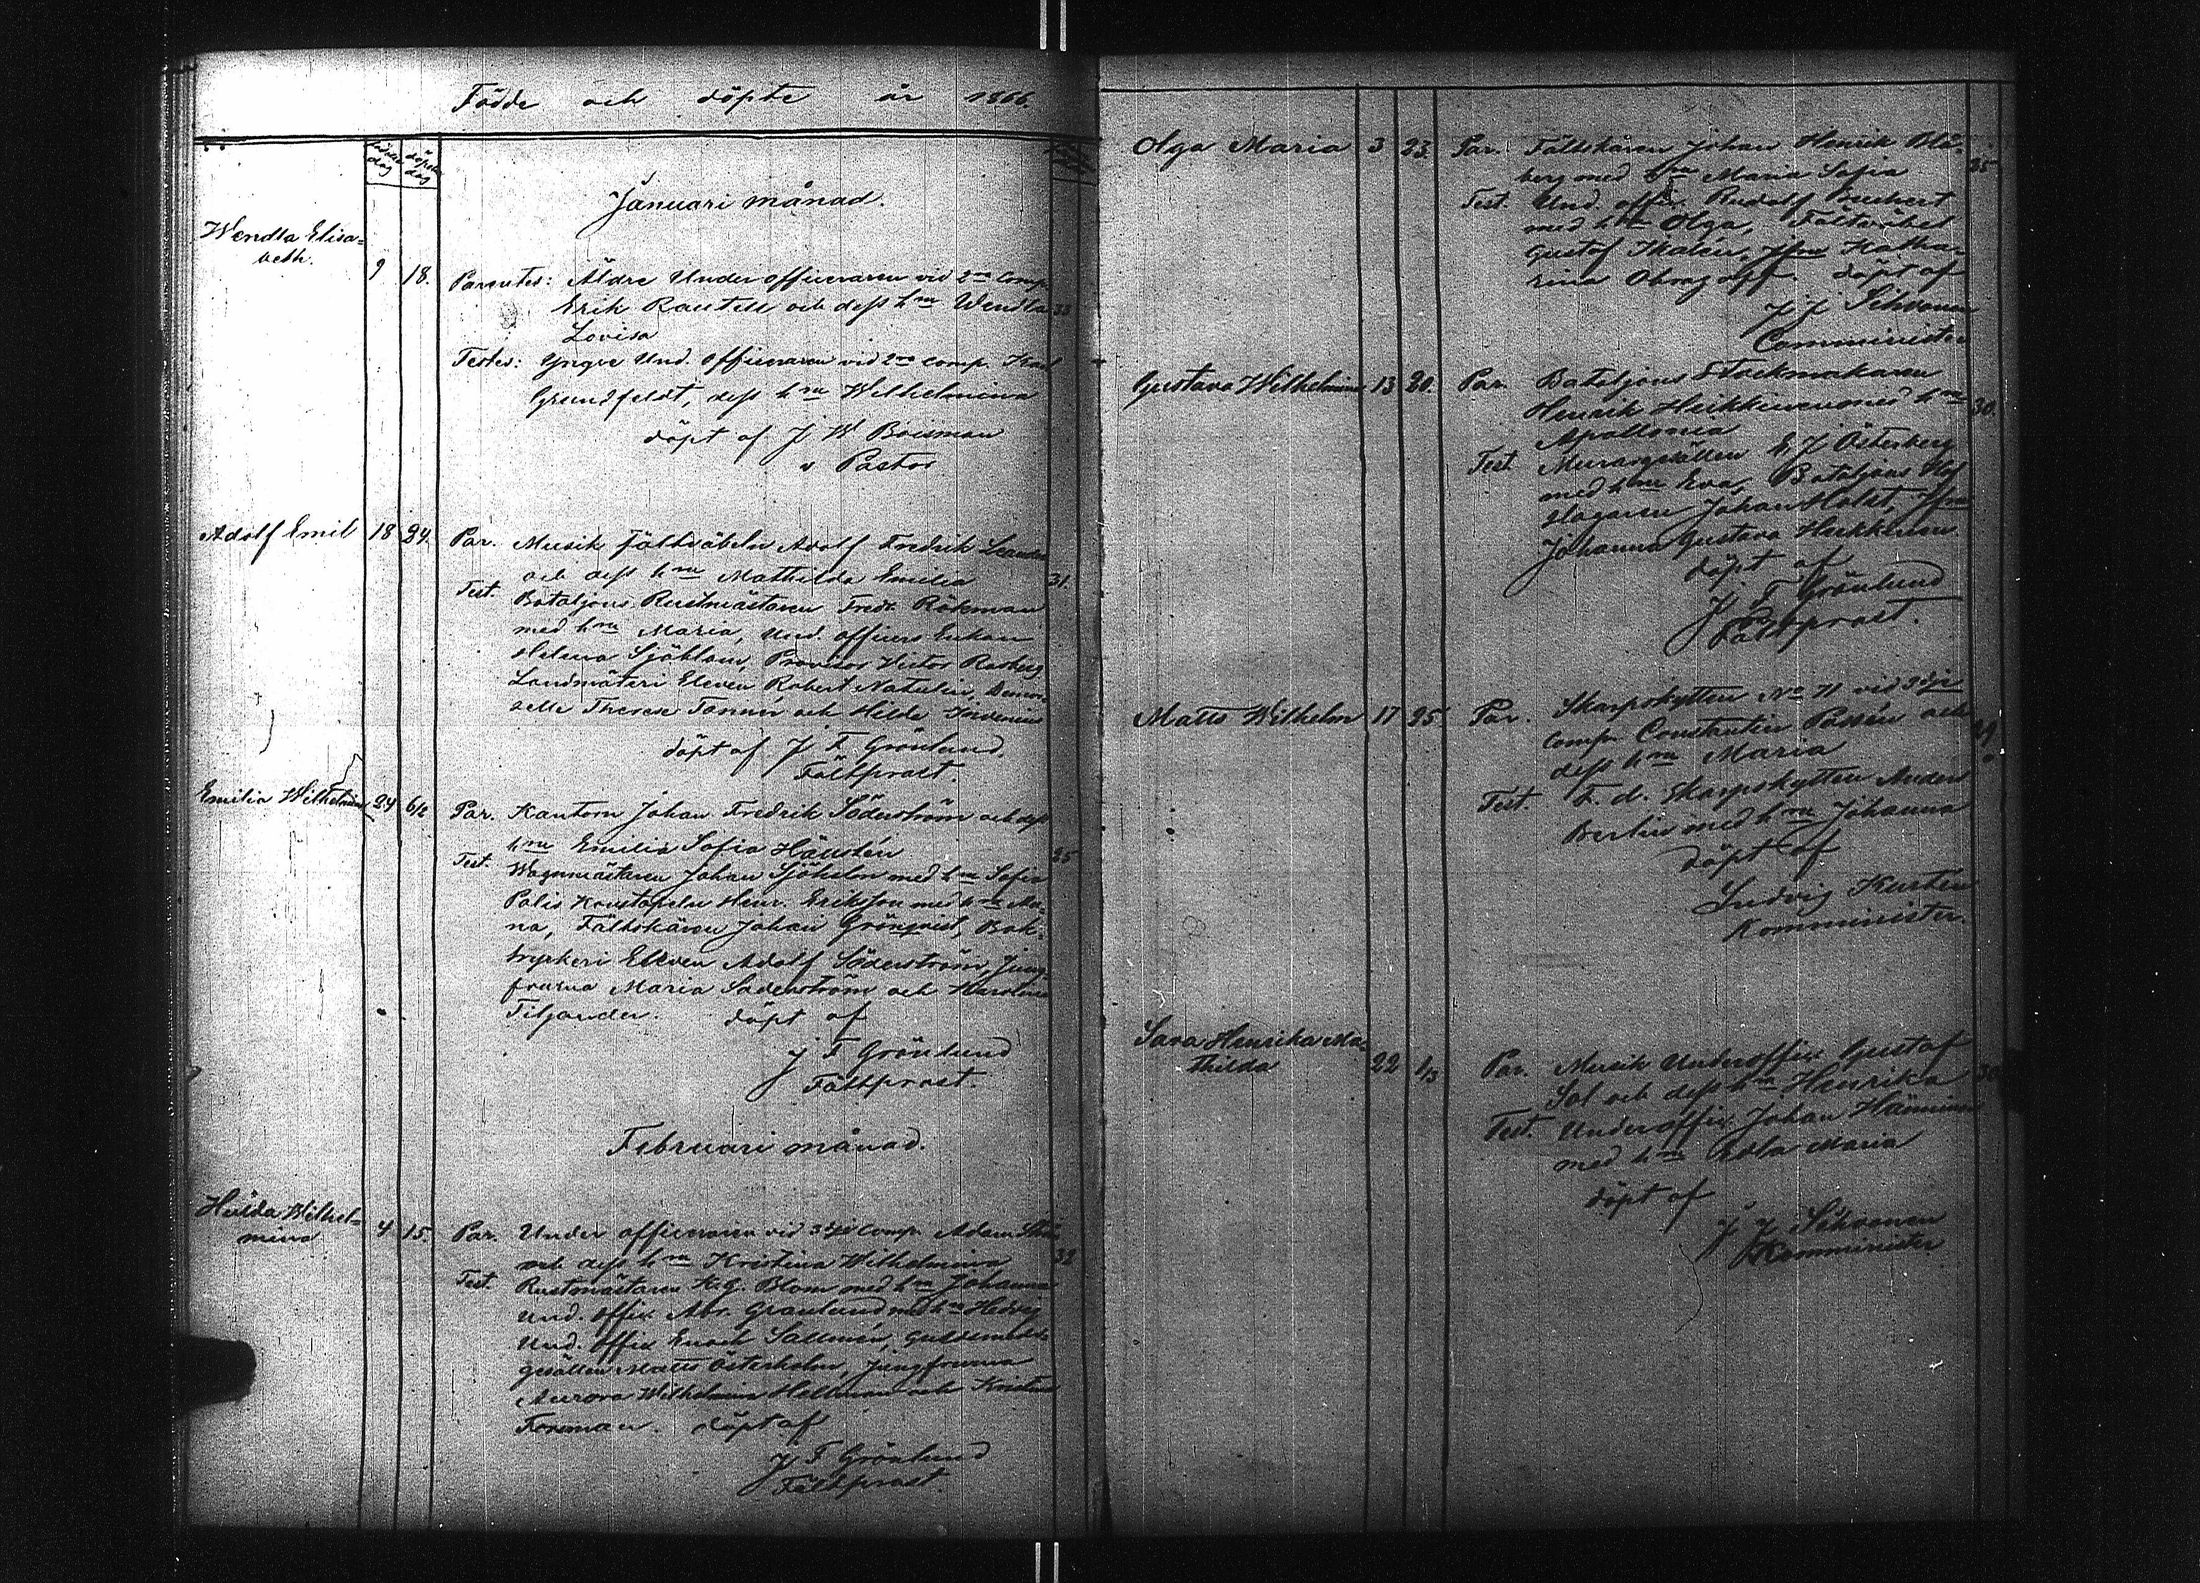 Födde och döpte år 1866.
födelse dag
döpelse dag
Januari månad.
Wendla Elisa=
beth.
9 18.
Parentes: Äldre Under officeraren vid 2ra Comp.
Erik Rautell och dess h:ru Wendla 33
Lovisa
Testes: Yngre Und. officeraren vid 2ra Comp. Karl
Grundfeldt, dess h:ru Wilhelmina
döpt af J W Boisman
v Pastor.
Adolf Emil 18 24.
Par. Musik fältväbeln Adolf Fredrik Leander
och dess h:ru Mathilda Emilia 31.
Test. Bataljons Rustmästaren Fredr. Rökman
med h:ru Maria, Und. officers Enkan
Helena Sjöblom, Provisor Victor Rosberg
Landmäteri Eleven Robert Natulin, Demoi=
selle Therese Tannér och Hilda
döpt af J F Grönlund.
Fältprost.
Emilia Wilhelmina 24 6/2
Par. Kantorn Johan Fredrik Söderström och dess
h:ru Emilia Sofia Hällstén 25
Test. Wagnmästaren Johan Sjöholm med h:ru Sofia
Polis Konstapeln Henr. Eriksson med h:ru An=
na, Fältskären Johan Grönqvist, Bok=
tryckeri Eleven Adolf Söderström, Jung=
fruarna Maria Söderström och Karolina
Tiljander. döpt af
J F Grönlund
Fältprost.
Februari månad.
Hulda Wilhel=
mina 4 15.
Par. Under officeraren vid 3dje Comp. Adam
och dess h:ru Kristina Wilhelmina 32
Test. Rustmästaren K. G. Blom med h:ru Johanna
Und. offic. Abr. Granlund med h:ru Hedvig
Und. offic. Enoch Sallmén, Guldsmeds
gesällen Matts Österholm, Jungfruarna
Aurora Wilhelmina Hellman och Kristina
Forsman. döpt af
J. F Grönlund
Fältprost.
Olga Maria 3 23.
Par. Fältskären Johan Henrik Blå=
berg med h:ru Maria Sofia 25
Test. Und. offic. Rudolf Bruckert
med h:ru Olga, Fältväbel
Gustaf Malén, Jfru Katha=
rina döpt af
J J Sihvonen
Comminister
Gustava Wilhelmina 13 20.
Par. Bataljons Stockmakaren
Henrik Heikkinen med h:ru 30.
Apollonia
Test. Muraregesällen E. J Österberg
med h:ru Eva, Bataljons Hof
slagaren Johan Holst, Jfru
Johanna Gustava Heikkinen
döpt af
J F Grönlund
Fältprost.
Matts Wilhelm 17 25
Par. Skarpskytten No 71 vid 3dje
Comp. Constantin Passén och
dess h:ru Maria
Test. F. d. Skarpskytten Anders
Berlin med h:ru Johanna
döpt af
Ludvig Kurtén
Komminister.
Sara Henrika Ma=
thilda 22 1/3
Par. Musik Underoffic. Gustaf
Sal och dess h:ru Henrika
Test. Underoffic. Johan Hänninen
med h:ru Edla Maria
döpt af
J J Sihvonen
Komminister